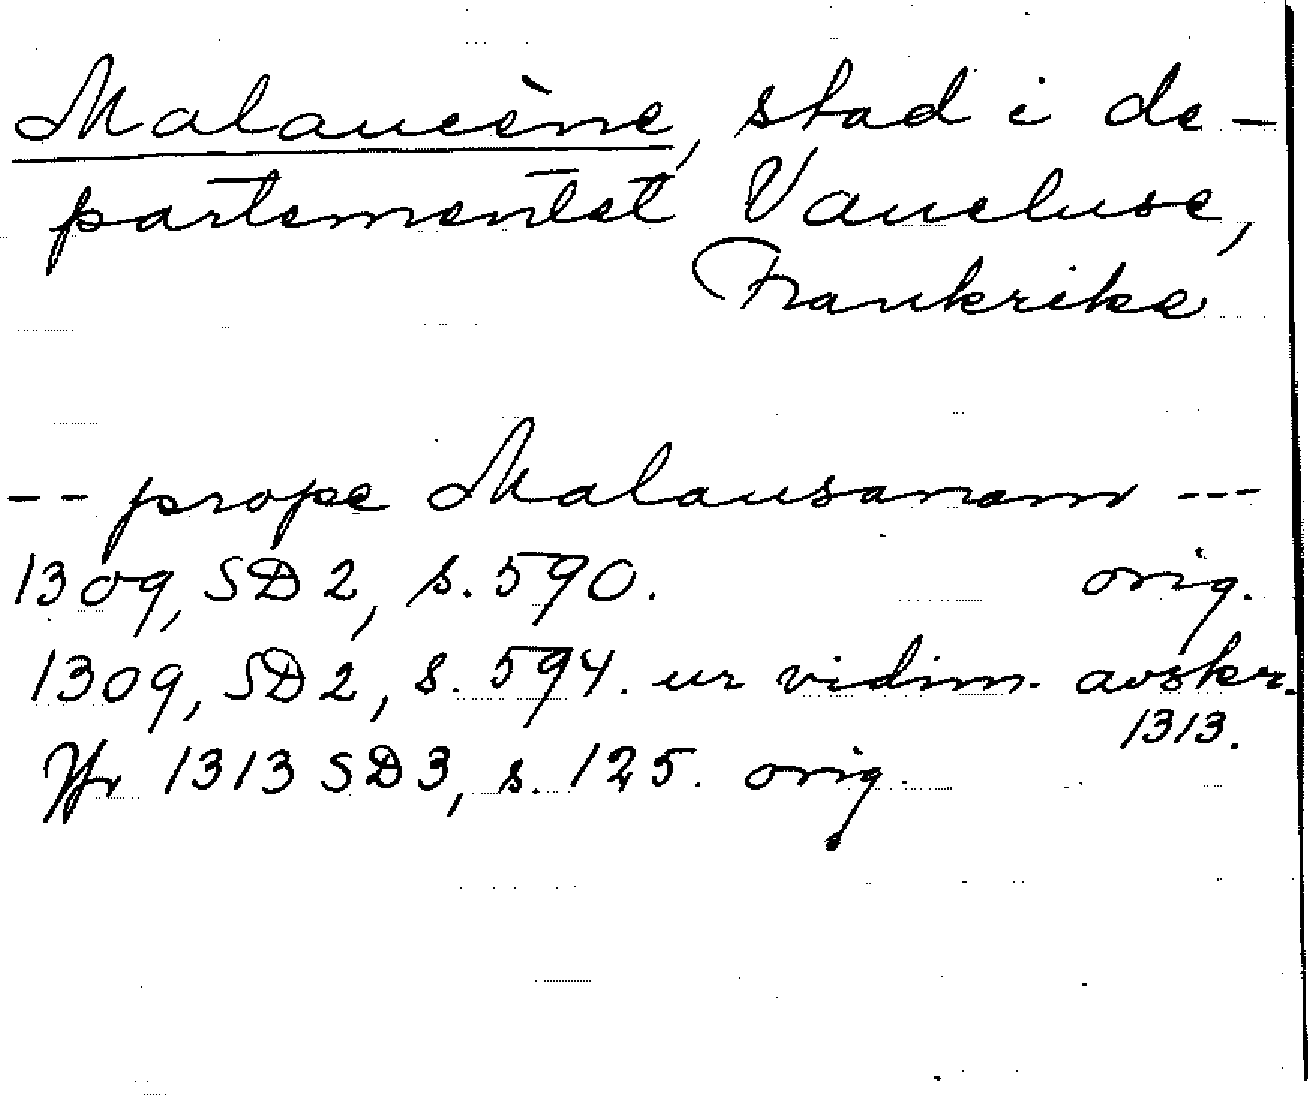 Malaucène, stad i de-
partementet Vaucluse,
Frankrike
-- prope Malausanam ---
1309, SD 2, s. 590. orig.
1309, SD 2, s. 594. ur vidim. avskr.
1313.
Jfr 1313 SD 3, s. 125. orig.